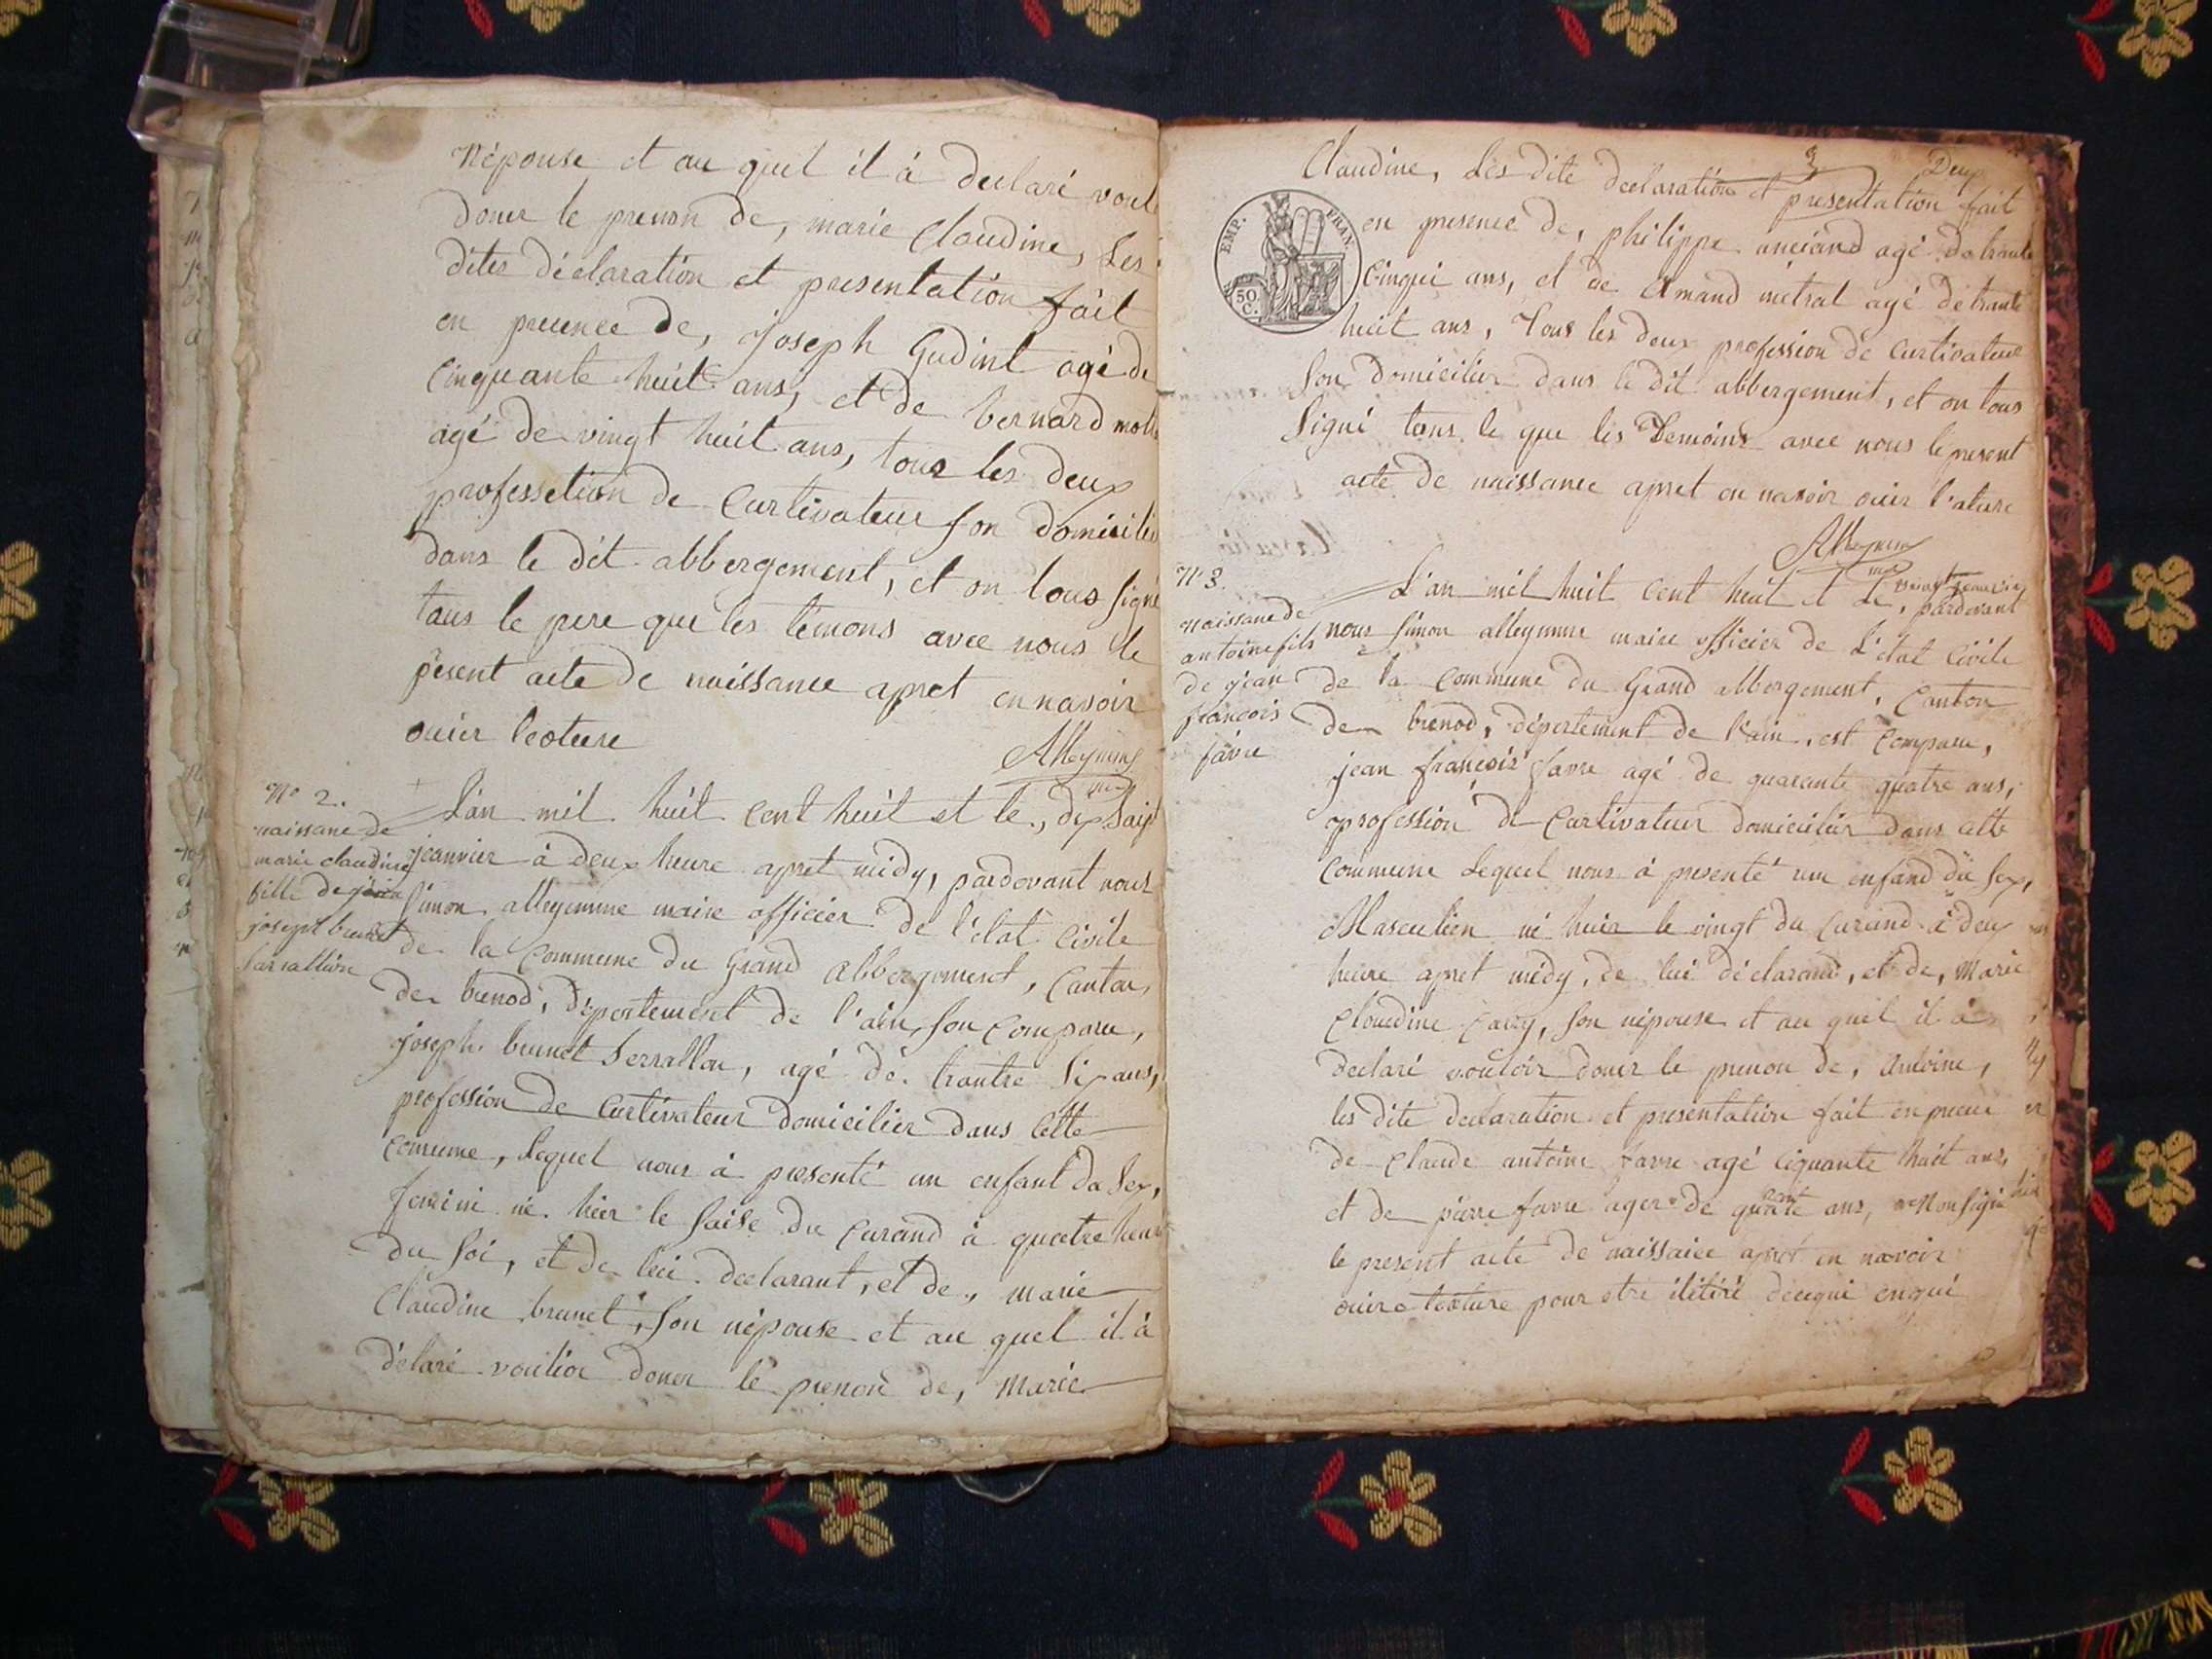 Népouse et au quel il à declaré voul
doner le prenon de, marie Claudine, Les
dites déclaration et presentation fait
en precence de, joseph Gudint agé de
Cinquante huit ans, et de bernard
agé de vingt huit ans, tous les deux
professetion de Curtivateur son domicilié
dans le dit abbergement, et on tous signé
tans le pere que les témons avec nous le
présent acte de naissance apret en navoir
ouier lecture
Alleymme
N° 2.
naissane de
marie claudine
fille de jean
joseph brunet
L'an mil huit Cent huit et le, dix Saipt
jeanvier à deux heure apret midy, pardevant nous
Simon alleymme maire officier de l'état Civile
de la Commune du Grand Abbergement, Canton
de brenod, département de l'ain, son Comparu,
joseph brunet Serrallon, agé de trantre Six ans,
profession de Curtivateur domicilier dans Cette
comume, Lequel nous à presenté un enfant du Sex,
feminin né hier le Saise du Curand à quatre heure
du Soi, et de lui declarant, et de, marie
Claudine brunet, Son népouse et au quel il à
délaré voulior doner le prenon de, Marie
3 Deux
Claudine, Les dite declaration et presentation fait
EMP. FRAN.
50 C.
en presence de, philippe anciand agé de trante
Cinqui ans, et de Amand métral agé de trante
huit ans, Tous les deux profession de Curtivateur
Son Domicilier dans le dit abbergement, et on tous
Signé tans le que les Temoins avec nous le present
acte de naissance apret en navoir ouir l'ature
Alleymme
N° 3.
naissane de
antoine fils
de jean
françois
favre
L'an mil huit Cent huit et Le, pardevant
nous Simon alleymme maire officier de L'état Civile
de la Commune du Grand abbergement, Canton
de brenod, département de l'ain, est Comparu,
jean françois favre agé de quarante quatre ans,
profession de Curtivateur domicilier dans cette
Commune Lequel nous à presenté un enfand du Sex,
Masculien né huier le vingt du Curand à deux
heure apret midy, de lui déclarand, et de, Marie
Cloudine Carry, Son népouse et au quel il à
declaré vouloir doner le prenon de, Antoine,
les dite declaration et presentation fait en precen
de Claude antoine favre agé ciquante huit ans,
et de pierre favre ager de quarante ans, Non signé
le present acte de naissaice apret en navoir
ouire lecture pour etre ilitiré decequi enqui